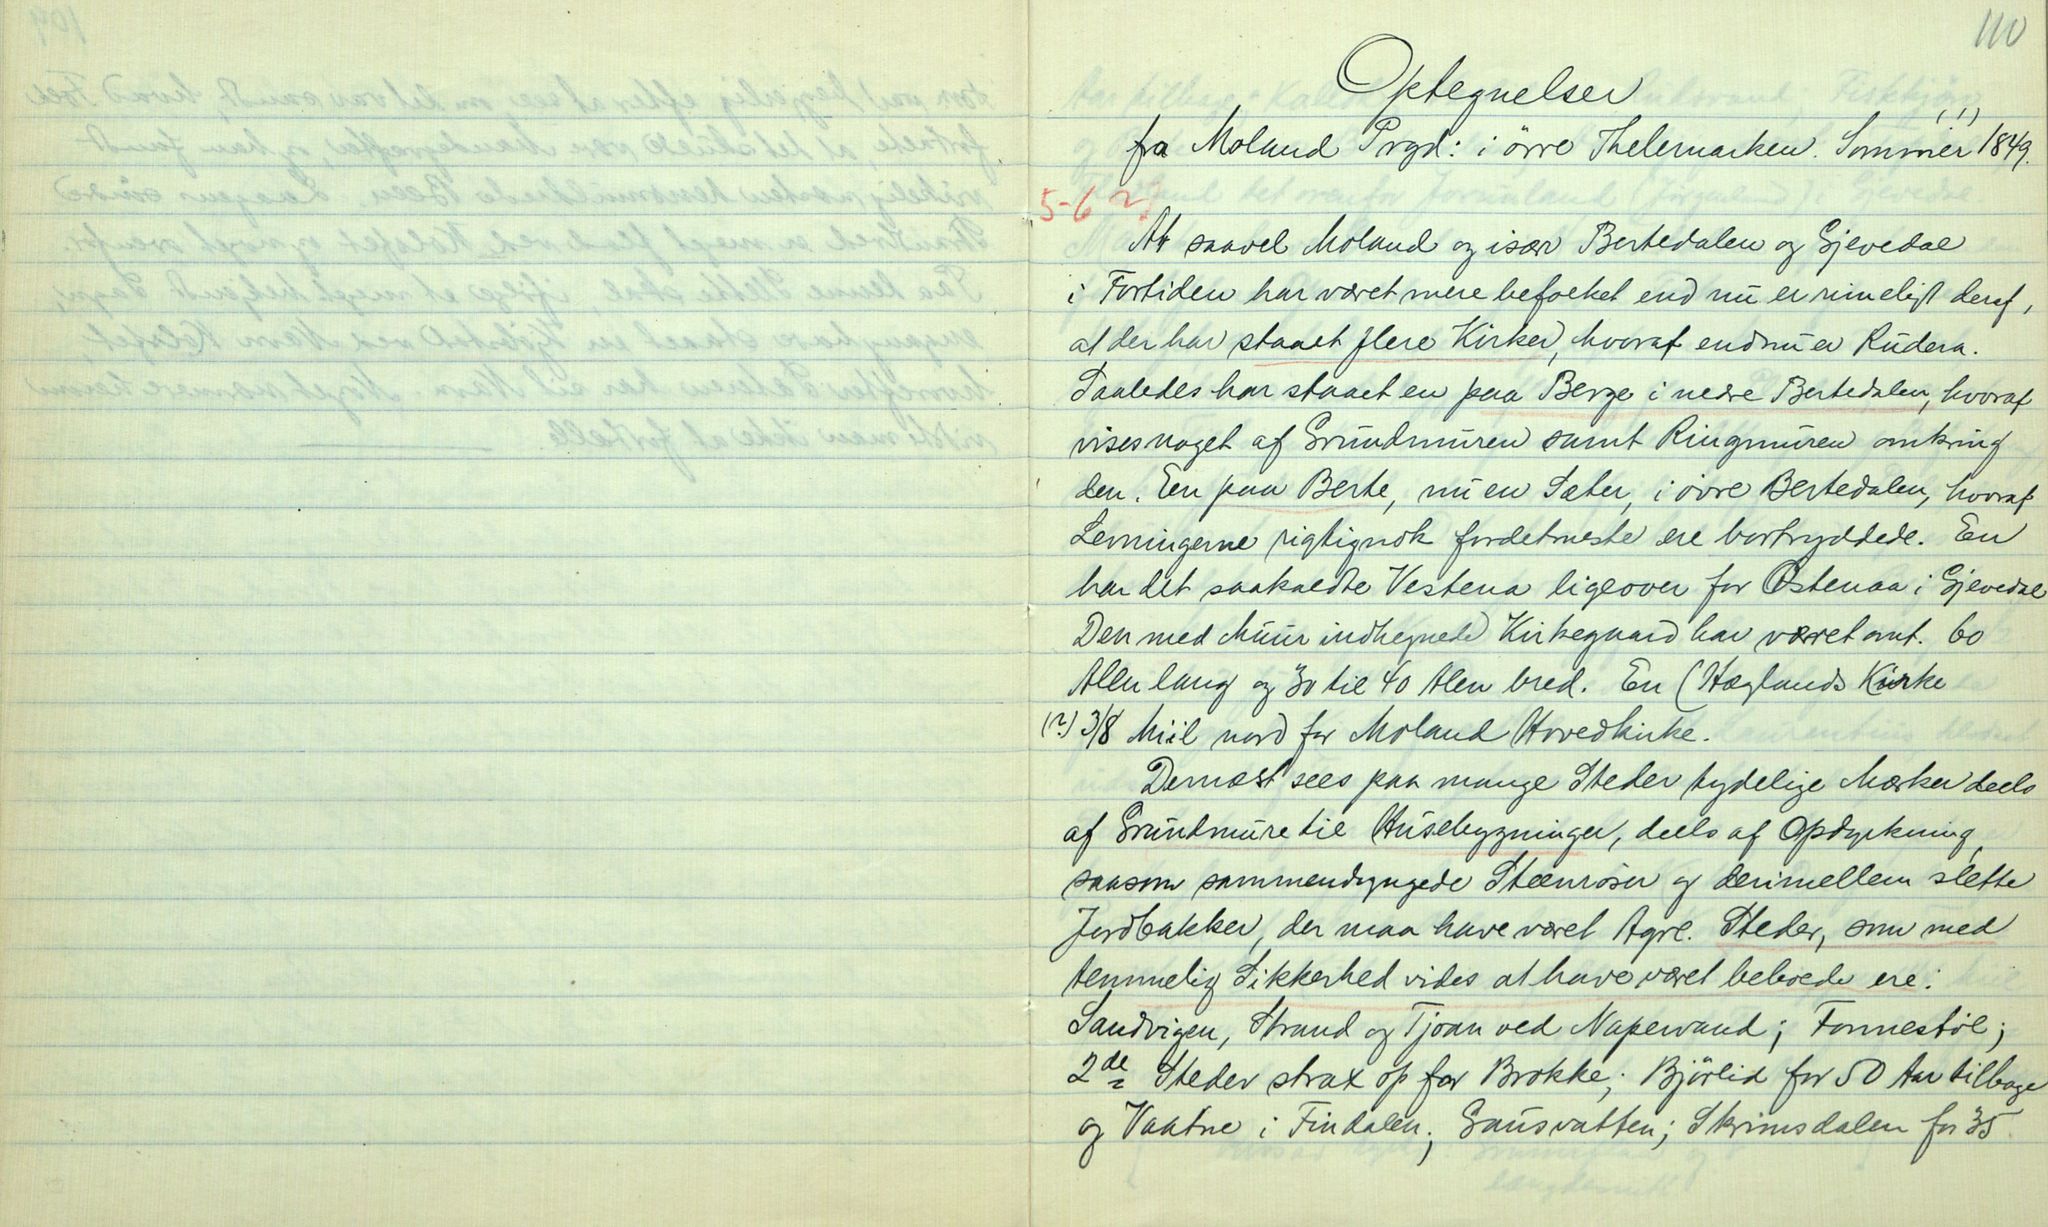 110
Optegnelser
(!)
fra Moland Prgd: i övre Thelemarken. Sommer 1849.
5-6 2)
At saavel Moland og især Bertedalen og Gjevedal
i Fortiden har været mere befolket end nu er rimeligt deraf,
at der har staaet flere Kirker, hvoraf endnu er Rudera.
Saaledes har staaet en paa Berge i nedre Bertedalen, hvoraf
vises noget af Grundmuren samt Ringmuren omkring
den. Een paa Berte, nu en Sæter, i övre Bertedalen, hvoraf
Levningerne rigtignok fordetmeste ere bortryddede. En
har det saakaldte Vestena ligeover for Østenaa i Gjevedal
Den med Muur indhegnede Kirkegaard har været omt. 60
Alen lang og 30 til 40 Alen bred. En (Hæglands Kirke
(?) 3/8 Miil nord for Moland Hovedkirke.
Dernæst sees paa mange Steder tydelige Mærker deels
af Grundmure til Husebygninger, deels af Opdyrkning,
saasom sammendyngede Steenröser og derimellem slette
Jordbakker, der maa have været Agre. Steder, som med
temmelig Sikkerhed vides at have været beboede ere:
Sandvigen, Strand og Tjoan ved Napevand; Fonnestöl;
2de Steder strax op for Brokke; Björlid for 50 Aar tilbage
og Vaatne i Findalen; Gausvatten; Skrimsdalen for 35